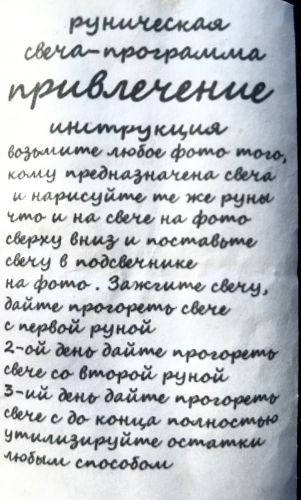 руническая
свеча-программа
привлечение
инструкция
возьмите любое фото того,
кому предназначена свеча
и нарисуйте те же руны
что и на свече на фото
сверху вниз и поставьте
свечу в подсвечнике
на фото. Зажгите свечу,
дайте прогореть свече
с первой руной
2-ой день дайте прогореть
свече со второй руной
3-ий день дайте прогореть
свече с до конца полностью
утилизируйте остатки
любым способом